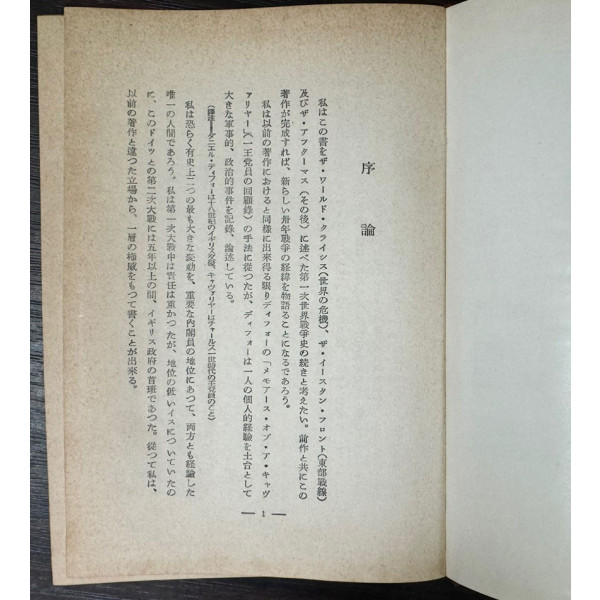 序論
私はこの書をザ・ワールド・クライシス(世界の危機)、ザ・イースタン・フロント(東部戦線)
及びザ・アフターマス(その後)に述べた第一次世界戦争史の続きと考えたい。前作と共にこの
著作が完成すれば、新らしい卅年戦争の経緯を物語ることになるであろう。
私は以前の著作におけると同様に出来得る限りディフォーの「メモアース・オブ・ア・キャヴ
ァリヤー」(一王党員の回顧録)の手法に従つたが、ディフォーは一人の個人的経験を土台として
大きな軍事的、政治的事件を記録、論述している。
(譯注=ダニエル・ディフォーは十八世紀のイギリス文豪、キャヴァリヤーはチャールス一世時代の王党員のこと)
私は恐らく有史上二つの最も大きな変動を、重要な内閣員の地位にあつて、両方とも経論した
唯一の人間であろう。私は第一次大戦中は責任は重かつたが、地位の低いイスについていたの
に、このドイツとの第二次大戦には五年以上の間、イギリス政府の首班であつた。従つて私は、
以前の著作と違つた立場から、一層の権威をもつて書くことが出来る。
— 1 —